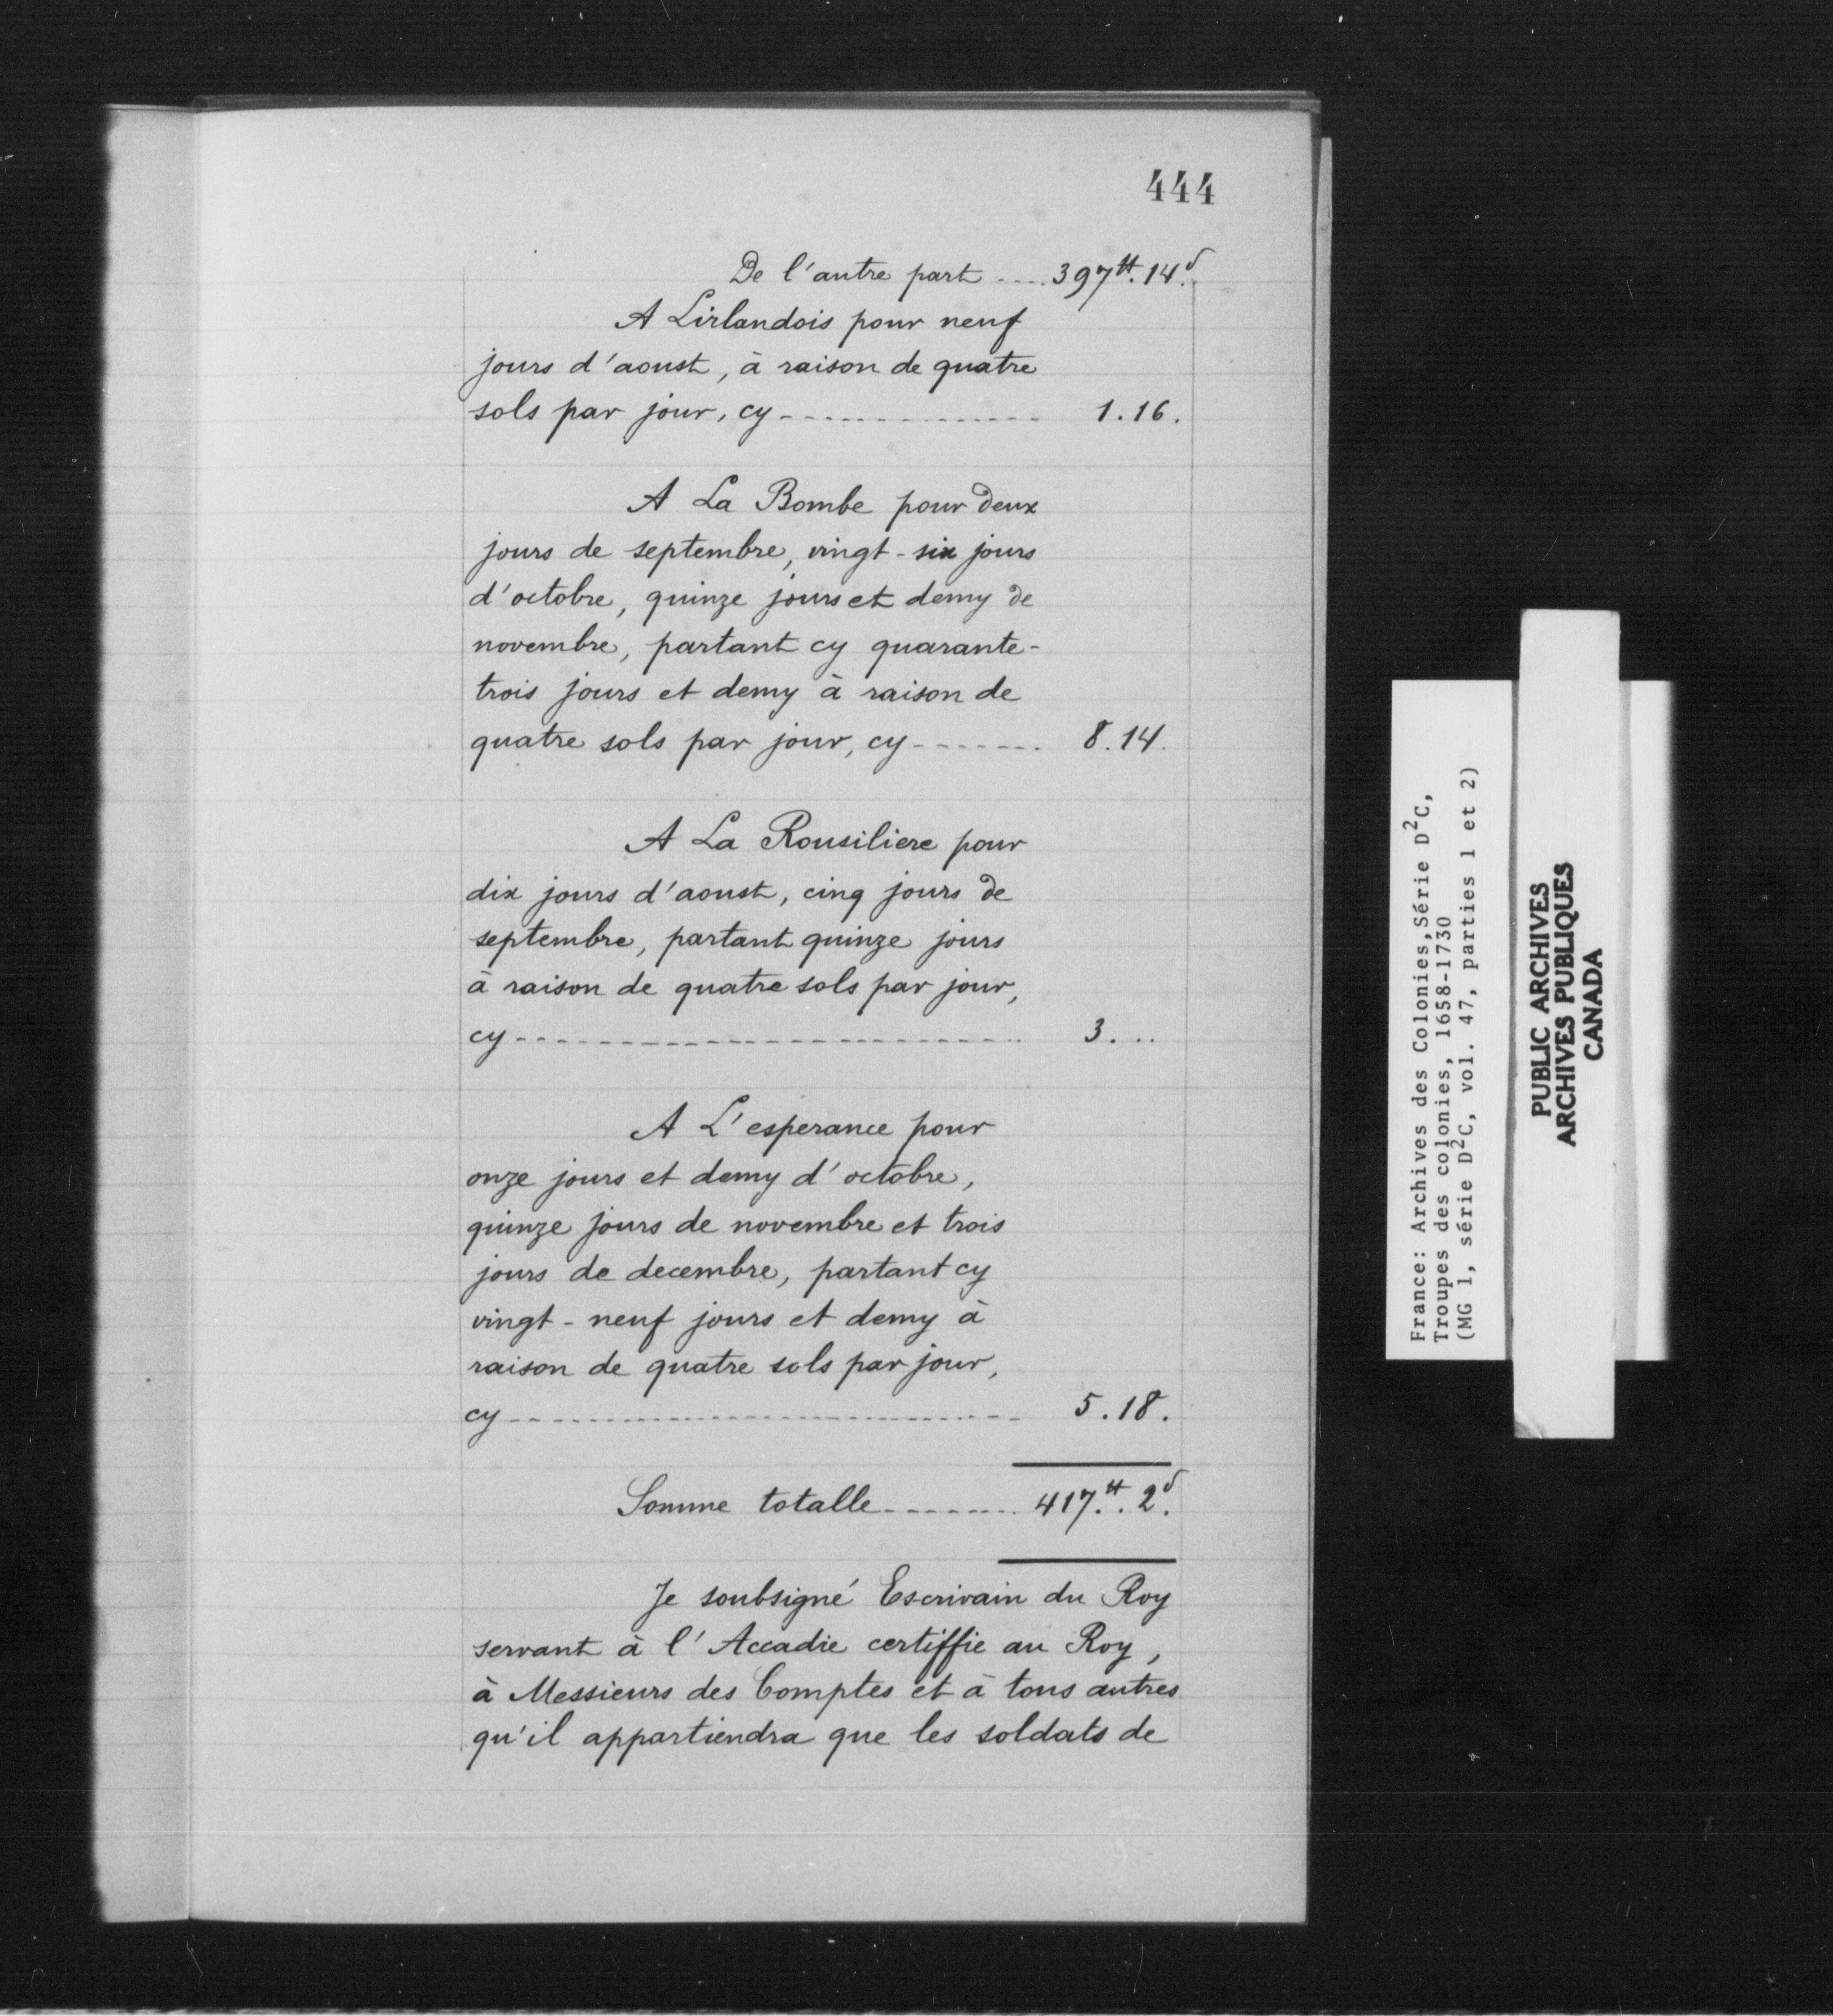 444
De l'autre part .... 397tt. 14s.
A Lirlandois pour neuf
jours d'aoust, à raison de quatre
sols par jour, cy -------------- 1.16.
A La Bombe pour deux
jours de septembre, vingt-six jours
d'octobre, quinze jours et demy de
novembre, partant cy quarante-
trois jours et demy à raison de
quatre sols par jour, cy ------- 8.14.
A La Rousiliere pour
dix jours d'aoust, cinq jours de
septembre, partant quinze jours
à raison de quatre sols par jour,
cy ------------------------- 3. ..
A L'esperance pour
onze jours et demy d'octobre,
quinze jours de novembre et trois
jours de decembre, partant cy
vingt-neuf jours et demy à
raison de quatre sols par jour,
cy ------------------------- 5.18.
Somme totalle ------- 417.tt. 2s.
Je soubsigné Escrivain du Roy
servant à l'Accadie certiffie au Roy,
à Messieurs des Comptes et à tous autres
qu'il appartiendra que les soldats de
France: Archives des Colonies, Série D²C,
Troupes des colonies, 1658-1730
(MG 1, série D²C, vol. 47, parties 1 et 2)
PUBLIC ARCHIVES
ARCHIVES PUBLIQUES
CANADA